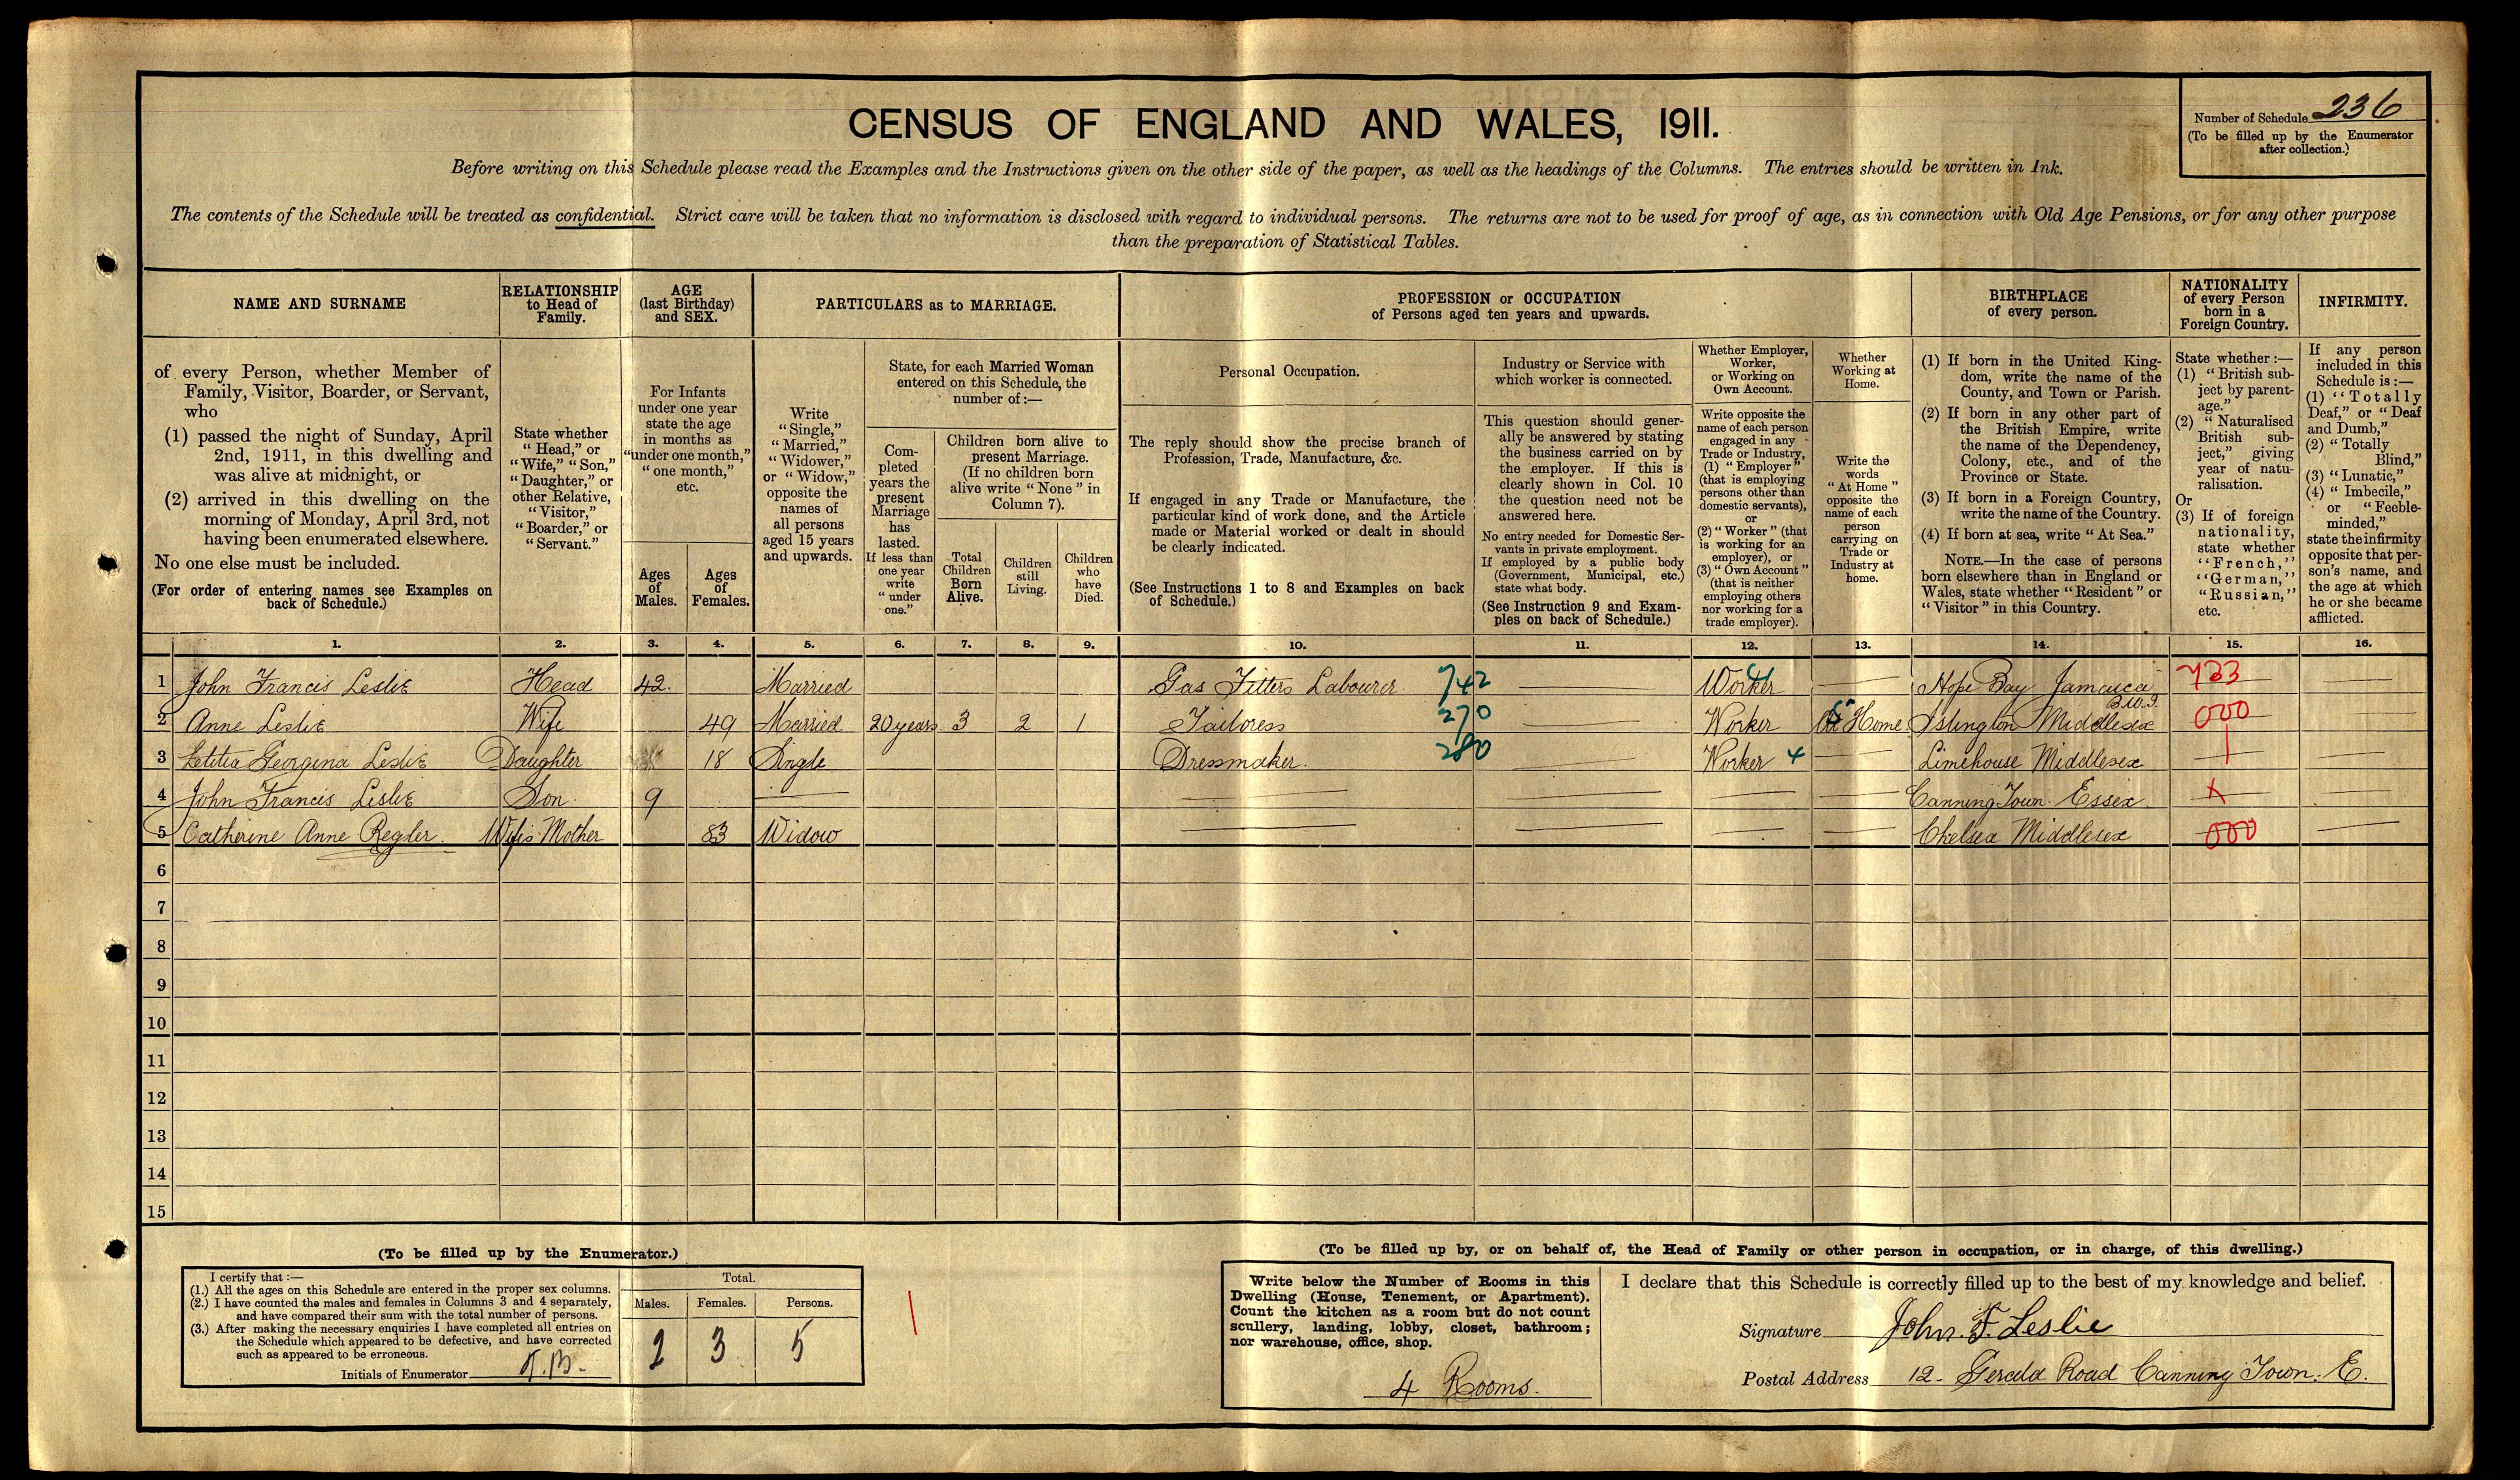 CENSUS OF ENGLAND AND WALES, 1911.
Number of Schedule 236
(To be filled up by the Enumerator
after collection.)
Before writing on this Schedule please read the Examples and the Instructions given on the other side of the paper, as well as the headings of the Columns. The entries should be written in Ink.
The contents of the Schedule will be treated as confidential. Strict care will be taken that no information is disclosed with regard to individual persons. The returns are not to be used for proof of age, as in connection with Old Age Pensions, or for any other purpose
than the preparation of Statistical Tables.
NAME AND SURNAME
RELATIONSHIP
to Head of
Family.
AGE
(last Birthday)
and SEX.
PARTICULARS as to MARRIAGE.
PROFESSION or OCCUPATION
of Persons aged ten years and upwards.
BIRTHPLACE
of every person.
NATIONALITY
of every Person
born in a
Foreign Country.
INFIRMITY.
of every Person, whether Member of
Family, Visitor, Boarder, or Servant,
who
(1) passed the night of Sunday, April
2nd, 1911, in this dwelling and
was alive at midnight, or
(2) arrived in this dwelling on the
morning of Monday, April 3rd, not
having been enumerated elsewhere.
No one else must be included.
(For order of entering names see Examples on
back of Schedule.)
State whether
"Head," or
"Wife," "Son,"
"Daughter," or
other Relative,
"Visitor,"
"Boarder," or
"Servant."
For Infants
under one year
state the age
in months as
"under one month,"
"one month,"
etc.
Ages
of
Males.
Ages
of
Females.
Write
"Single,"
"Married,"
"Widower,"
or "Widow,"
opposite the
names of
all persons
aged 15 years
and upwards.
State, for each Married Woman
entered on this Schedule, the
number of:—
Com-
pleted
years the
present
Marriage
has
lasted.
If less than
one year
write
"under
one."
Children born alive to
present Marriage.
(If no children born
alive write "None" in
Column 7).
Total
Children
Born
Alive.
Children
still
Living.
Children
who
have
Died.
Personal Occupation.
The reply should show the precise branch of
Profession, Trade, Manufacture, &c.
If engaged in any Trade or Manufacture, the
particular kind of work done, and the Article
made or Material worked or dealt in should
be clearly indicated.
(See Instructions 1 to 8 and Examples on back
of Schedule.)
Industry or Service with
which worker is connected.
This question should gener-
ally be answered by stating
the business carried on by
the employer. If this is
clearly shown in Col. 10
the question need not be
answered here.
No entry needed for Domestic Ser-
vants in private employment.
If employed by a public body
(Government, Municipal, etc.)
state what body.
(See Instruction 9 and Exam-
ples on back of Schedule.)
Whether Employer,
Worker,
or Working on
Own Account.
Write opposite the
name of each person
engaged in any
Trade or Industry,
(1) "Employer"
(that is employing
persons other than
domestic servants),
or
(2) "Worker" (that
is working for an
employer), or
(3) "Own Account"
(that is neither
employing others
nor working for a
trade employer).
Whether
Working at
Home.
Write the
words
"At Home"
opposite the
name of each
person
carrying on
Trade or
Industry at
home.
(1) If born in the United King-
dom, write the name of the
County, and Town or Parish.
(2) If born in any other part of
the British Empire, write
the name of the Dependency,
Colony, etc., and of the
Province or State.
(3) If born in a Foreign Country,
write the name of the Country.
(4) If born at sea, write "At Sea."
NOTE.—In the case of persons
born elsewhere than in England or
Wales, state whether "Resident" or
"Visitor" in this Country.
State whether:—
(1) "British sub-
ject by parent-
age."
(2) "Naturalised
British sub-
ject," giving
year of natu-
ralisation.
Or
(3) If of foreign
nationality,
state whether
"French,"
"German,"
"Russian,"
etc.
If any person
included in this
Schedule is:—
(1) "Totally
Deaf," or "Deaf
and Dumb,"
(2) "Totally
Blind,"
(3) "Lunatic,"
(4) "Imbecile,"
or "Feeble-
minded,"
state the infirmity
opposite that per-
son's name, and
the age at which
he or she became
afflicted.
1. 2. 3. 4. 5. 6. 7. 8. 9. 10. 11. 12. 13. 14. 15. 16.
1 John Francis Leslie Head 42 Married Gas Fitters Labourer 742 Worker 4 Hope Bay Jamaica 733
B.W.I.
2 Anne Leslie Wife 49 Married 20 years 3 2 1 Tailoress 270 Worker At Home Islington Middlesex 000
3 Letitia Georgina Leslie Daughter 18 Single Dressmaker. 280 Worker 4 Limehouse Middlesex
4 John Francis Leslie Son 9 Canning Town Essex X
5 Catherine Anne Regler. Wife's Mother 83 Widow Chelsea Middlesex 000
6
7
8
9
10
11
12
13
14
15
(To be filled up by the Enumerator.)
I certify that:—
(1.) All the ages on this Schedule are entered in the proper sex columns.
(2.) I have counted the males and females in Columns 3 and 4 separately,
and have compared their sum with the total number of persons.
(3.) After making the necessary enquiries I have completed all entries on
the Schedule which appeared to be defective, and have corrected
such as appeared to be erroneous.
Initials of Enumerator
Total.
Males. Females. Persons.
2 3 5
(To be filled up by, or on behalf of, the Head of Family or other person in occupation, or in charge, of this dwelling.)
Write below the Number of Rooms in this
Dwelling (House, Tenement, or Apartment).
Count the kitchen as a room but do not count
scullery, landing, lobby, closet, bathroom;
nor warehouse, office, shop.
4 Rooms.
I declare that this Schedule is correctly filled up to the best of my knowledge and belief.
Signature John. F. Leslie
Postal Address 12- Gerald Road Canning Town. E.